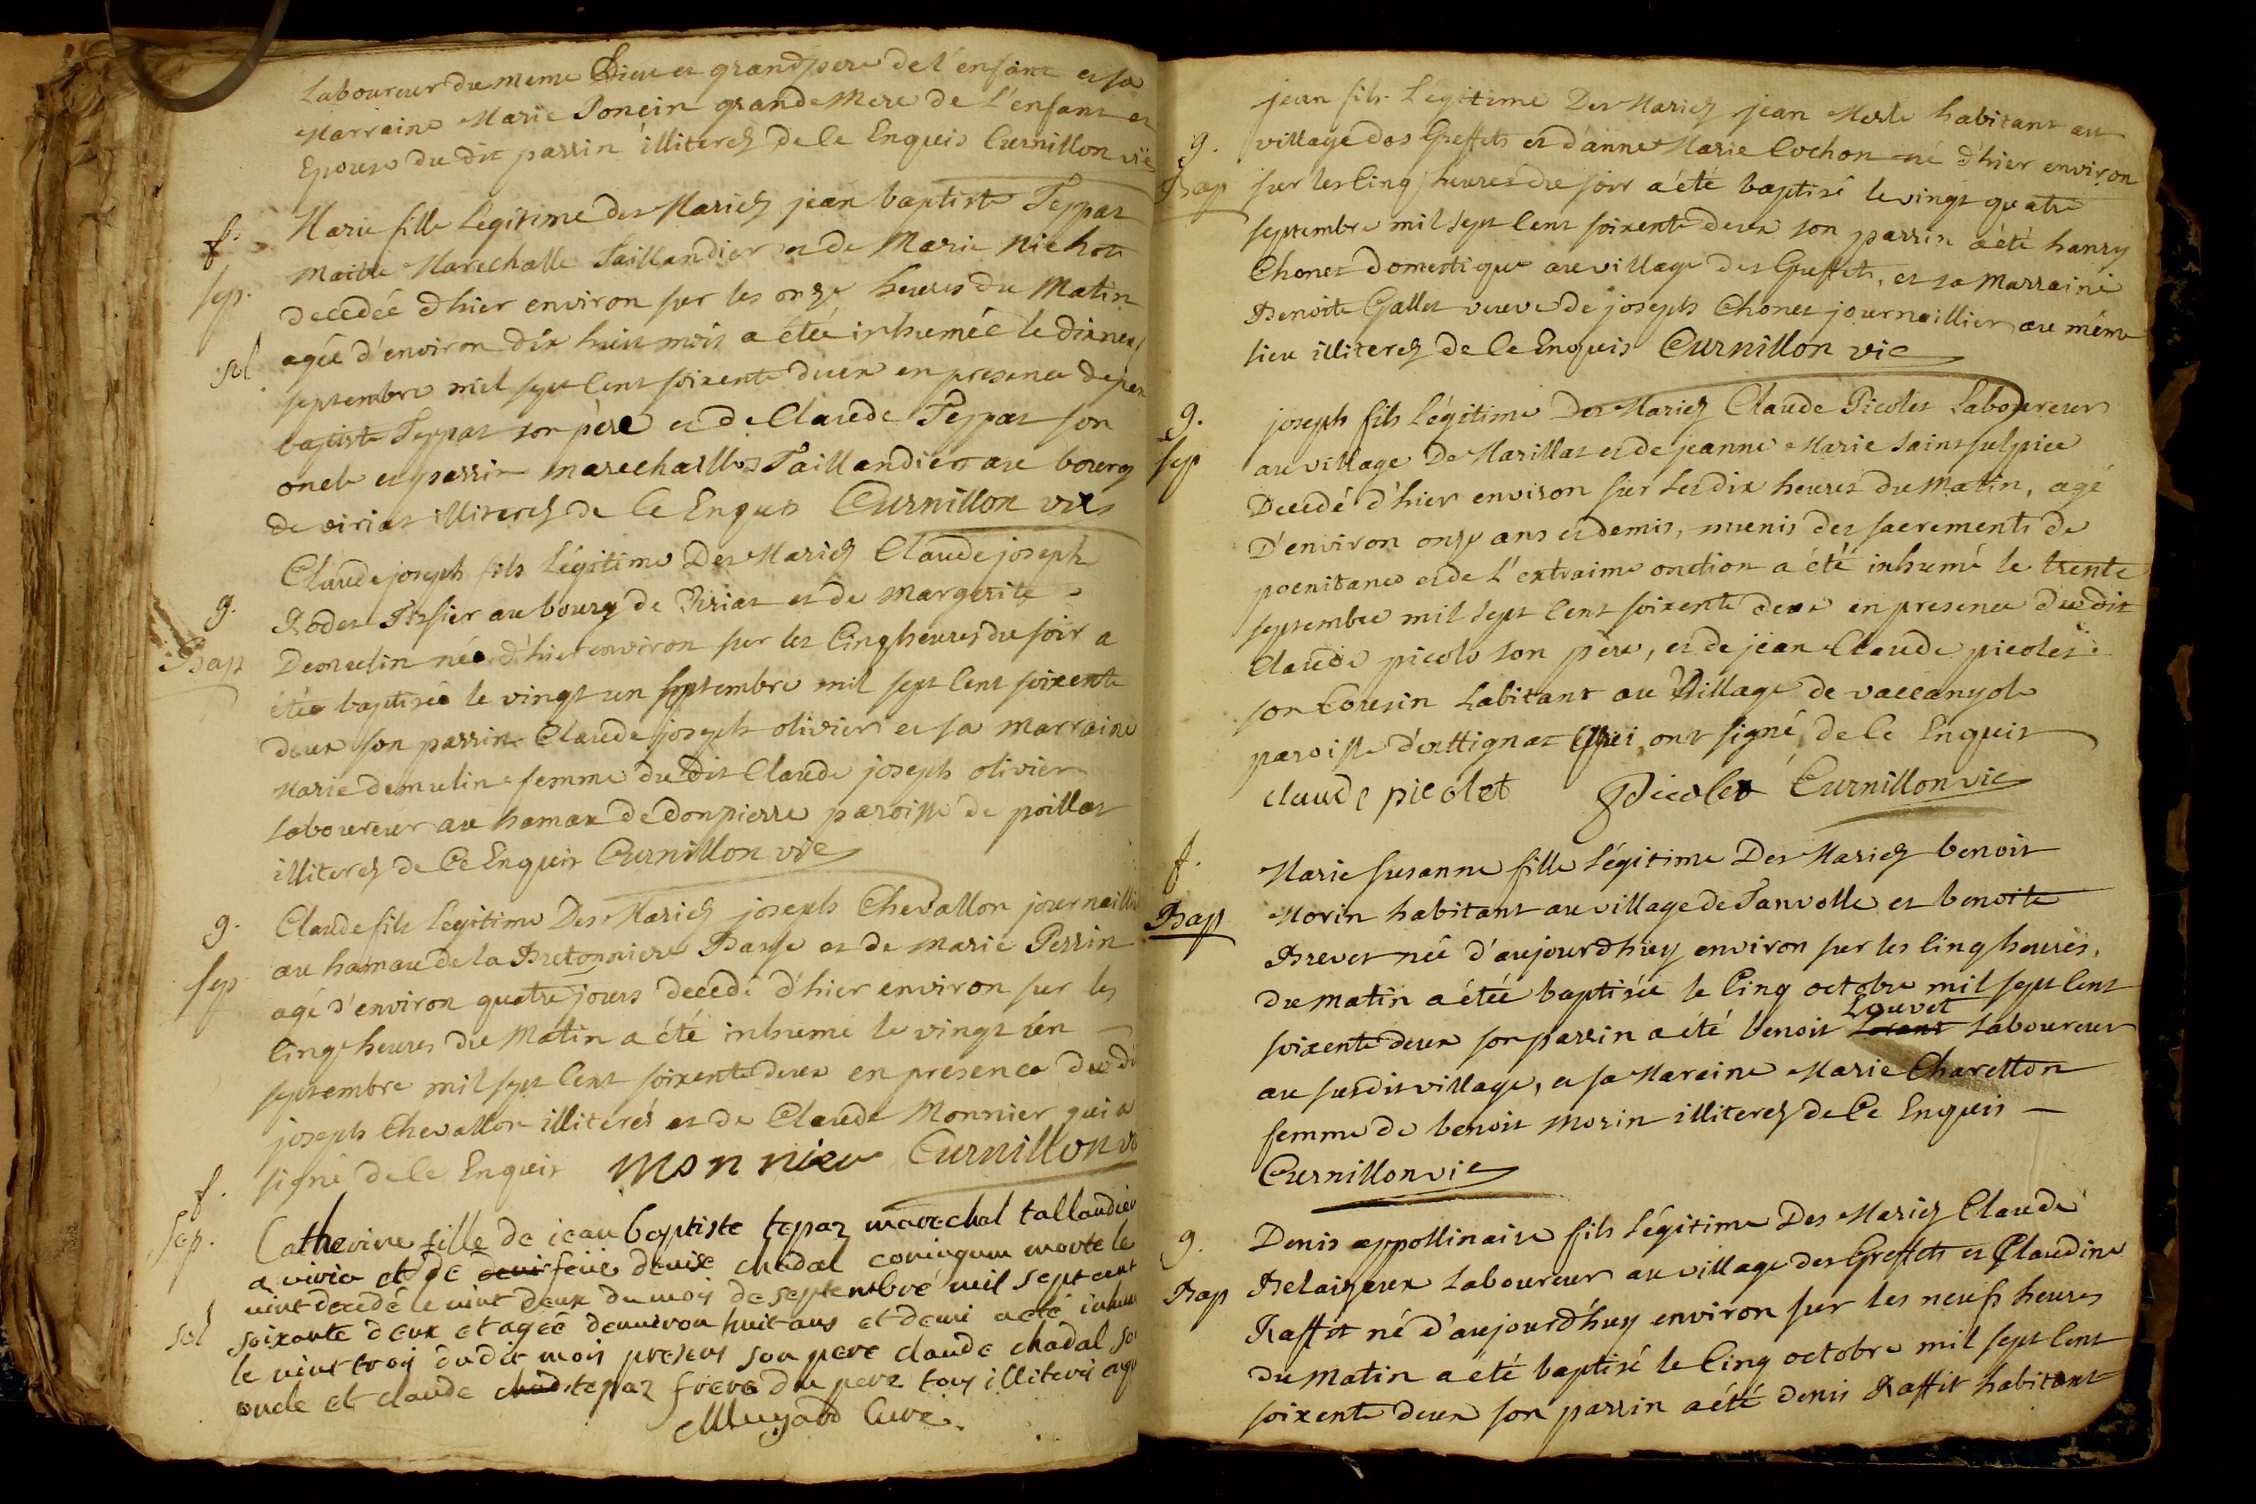 Laboureur du meme Lieu et grandpere de l'enfant et sa
Marraine Marie Poncin grande Mere de L'enfant et
Epouse du dit parrin illiterez de Ce Enquis Curnillon vic
f. Marie fille Légitime des Mariez jean baptiste Teppat
Maitre Marechalle Taillandier et de Marie Nichon
sep. decedée d'hier environ sur les onze heures du Matin
sol agée d'environ dix huit mois a étée inhumée le dixneuf
septembre mil sept Cent soixente deux en presence de jean
baptiste Teppat son père et de Claude Teppat son
oncle et parrin marechalles Taillandiers au bourg
de viriat illiterez de Ce Enquis Curnillon vic
Claude joseph fils Légitime Des Mariez Claude joseph
g. Rodet Tissier au bourg de Viriat et de Margerite
Bap Demulin né d'hier environ sur les Cinq heures du soir a
été baptisé le vingt un septembre mil sept Cent soixente
deux son parrin Claude joseph olivier et sa marraine
Marie demulin femme du dit Claude joseph olivier
Laboureur au hamax de donpierre paroisse de poillat
illiterez de Ce Enquis Curnillon vic
g. Claude fils Legitime Des Mariez joseph Chevallon journaillier
au hamau de la Bretonniere Basse et de Marie Perrin
sep agé d'environ quatre jours decedé d'hier environ sur les
Cinq heures du Matin a été inhumé le vingt un
septembre mil sept Cent soixente deux en presence du dit
joseph Chevallon illiteré et de Claude Monnier qui a
signé de Ce Enquis Monnier Curnillon vic
f.
sep. Catherine fille de jean baptiste tepaz marechal tallandier
a viria et de feüe denise chadal morte le
vint decedé le vint deux du mois de septembre mil sept cent
sol soixante deux et agée denviron huit ans et demi a eté inhumé
le vint trois dudit mois presens son pere claude chadal son
oncle et claude tepaz frere du pere tous illiteres
Mugard Curé.
jean fils Légitime Des Mariez jean Merle habitant au
g. village des Greffets et d'anne Marie Cochon né d'hier environ
Bap sur les Cinq heures du soir a été baptisé le vingt quatre
septembre mil sept Cent soixente deux son parrin a été hanry
Chonet domestique au village des Greffets, et sa Marraine
Benoite Gallet veuve de joseph Chonet journaillier au même
lieu illiterez de Ce Enquis Curnillon vic
g. joseph fils Légitime Des Mariez Claude Picolet Laboureur
sep au village De Marillat et de jeanne Marie Saint sulpice
Decedé d'hier environ sur les dix heures du Matin, agé
D'environ onze ans et demis, munis des sacrements de
poenitance et de L'extraime onction a été inhumé le trente
septembre mil sept Cent soixente deux en presence du dit
Claude picolet son père, et de jean Claude picolet
son Cousin habitant au Village de vaccanyole
paroisse d'attignat qui ont signé de Ce Enquis
claude picolet Picolet Curnillon vic
f. Marie susanne fille Légitime Des Mariez benoit
Bap Morin habitant au village de Tanvolle et benoite
Brevet née d'aujourdhuy environ sur les Cinq heures
du matin a étée baptisée le Cinq octobre mil sept Cent
soixente deux son parrin a été benoit Louvet Laboureur
au susdit village, et sa Maraine Marie Charetton
femme de benoit Morin illiterez de Ce Enquis
Curnillon vic
g. Denis appollinaire fils Légitime Des Mariez Claude
Bap Belaiseux Laboureur au village des Greffets et Claudine
Raffit né d'aujourd'huy environ sur les neufs heures
du Matin a été baptisé le Cinq octobre mil sept Cent
soixente deux son parrin a été denis Raffit habitant